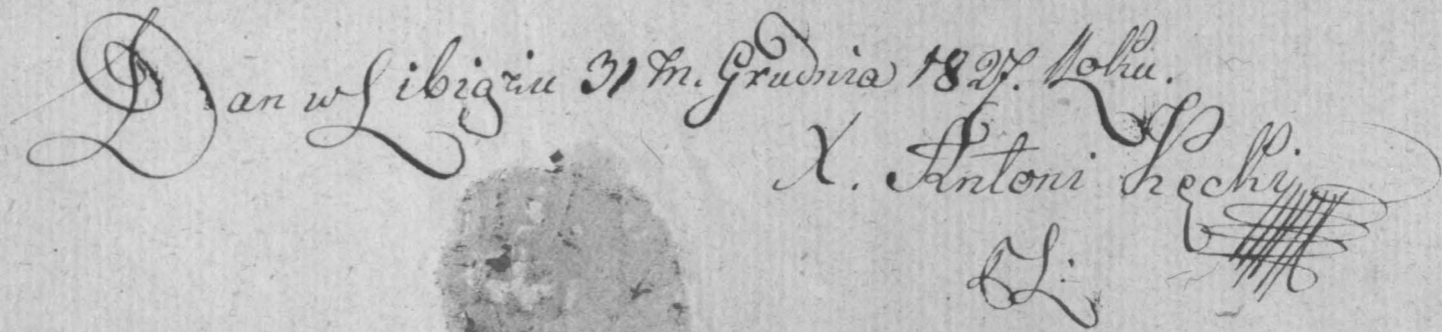 Dan w Libigziu 31 m. Grudnia 1827. Roku.
X. Antoni Kęcki